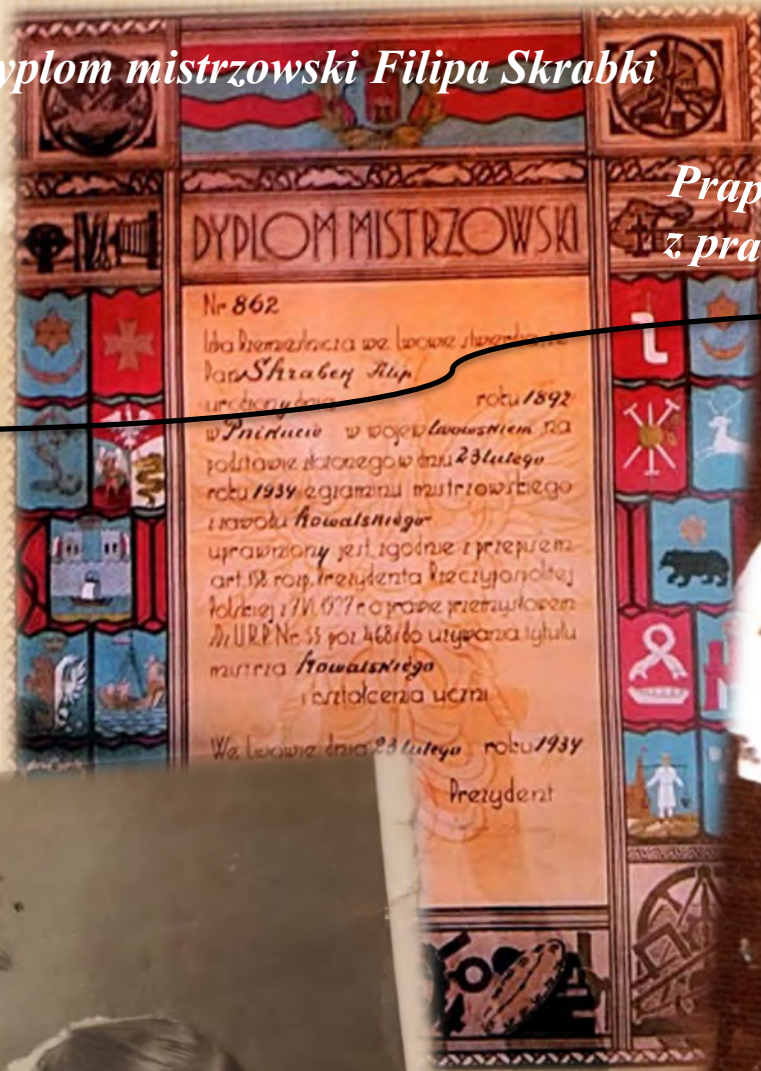 yplom mistrzowski Filipa Skrabki
Prap
z pra
DYPLOM MISTRZOWSKI
Nr 862
Izba Rzemieślnicza we Lwowie stwierdza że
Pan Skrabek Filip
urodzony dnia roku 1892
w Pnikucie w wojew. lwowskiem na
podstawie złożonego w dniu 23 lutego
roku 1934 egzaminu mistrzowskiego
z zawodu kowalskiego
uprawniony jest zgodnie z przepisem
art. 158 rozp. Prezydenta Rzeczypospolitej
Polskiej z 7.VI.1927 r. o prawie przemysłowem
Dz.U.R.P. Nr. 53 poz. 468 do używania tytułu
mistrza kowalskiego
i kształcenia uczni
We Lwowie dnia 23 lutego roku 1934
Prezydent